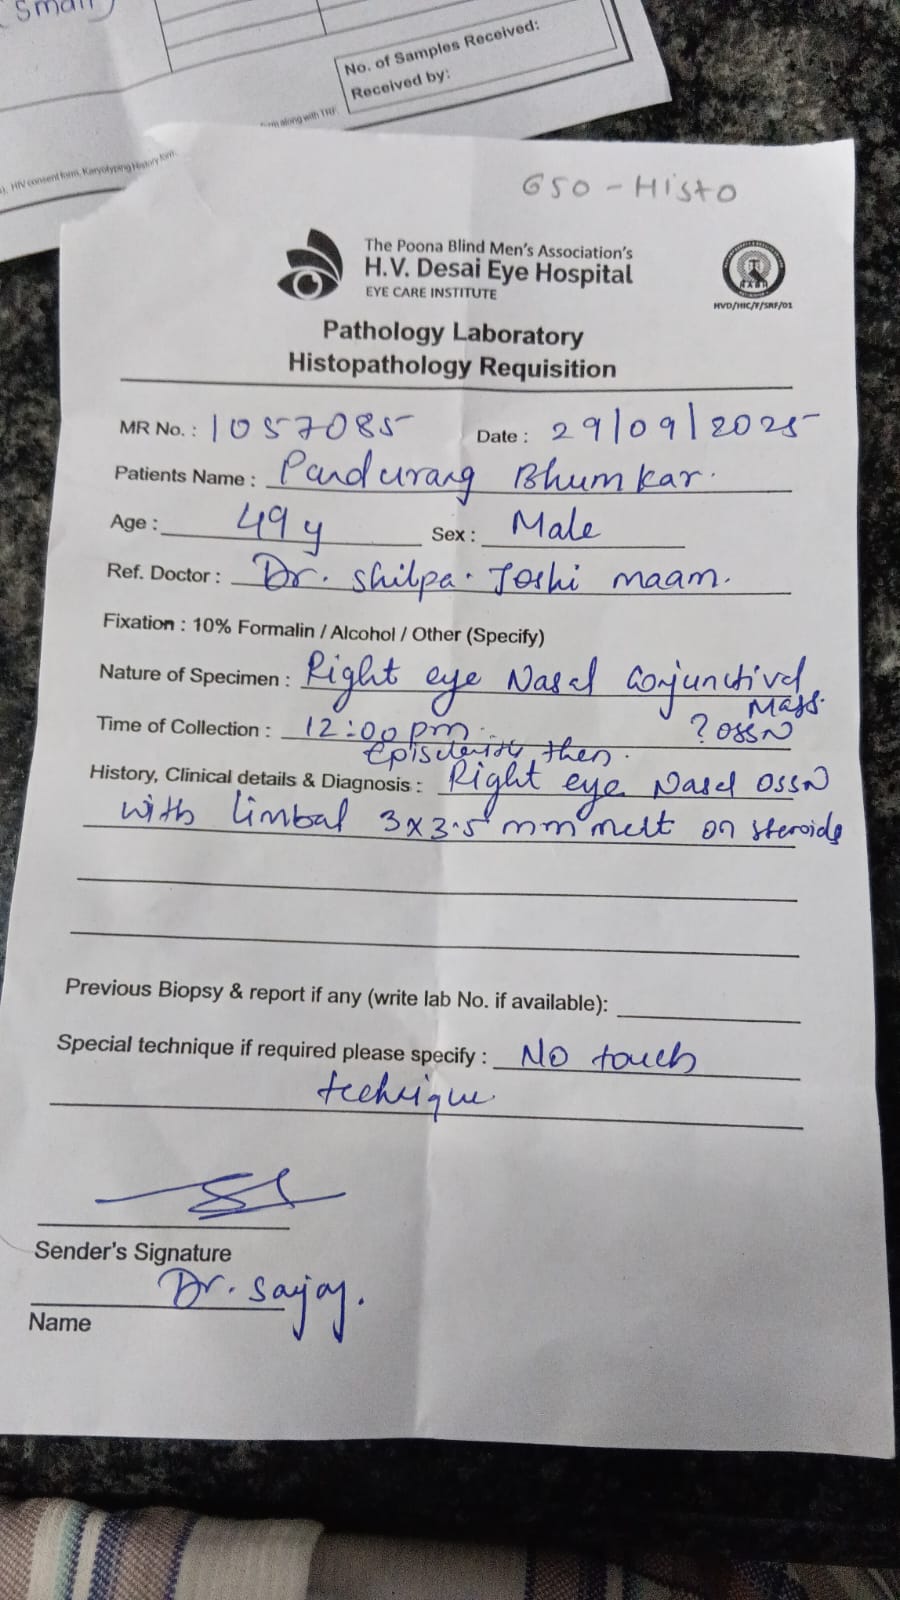 Small
No. of Samples Received:
Received by:
along with TRF
HIV consent form, Karyotyping History form.
650 - Histo
The Poona Blind Men's Association's
H.V. Desai Eye Hospital
EYE CARE INSTITUTE
HVD/HIC/F/SRF/01
Pathology Laboratory
Histopathology Requisition
MR No. : 1057085 Date : 29/09/2025
Patients Name : Pandurang Bhumkar.
Age : 49 y Sex : Male
Ref. Doctor : Dr. Shilpa. Joshi maam.
Fixation : 10% Formalin / Alcohol / Other (Specify)
Nature of Specimen : Right eye Nasal Conjunctival
Mass.
Time of Collection : 12:00 pm. ? OSSN
then.
History, Clinical details & Diagnosis : Right eye Nasal OSSN
with limbal 3x3.5 mm melt on steroids
Previous Biopsy & report if any (write lab No. if available):
Special technique if required please specify : No touch
technique.
Sender's Signature
Dr. Sanjay.
Name